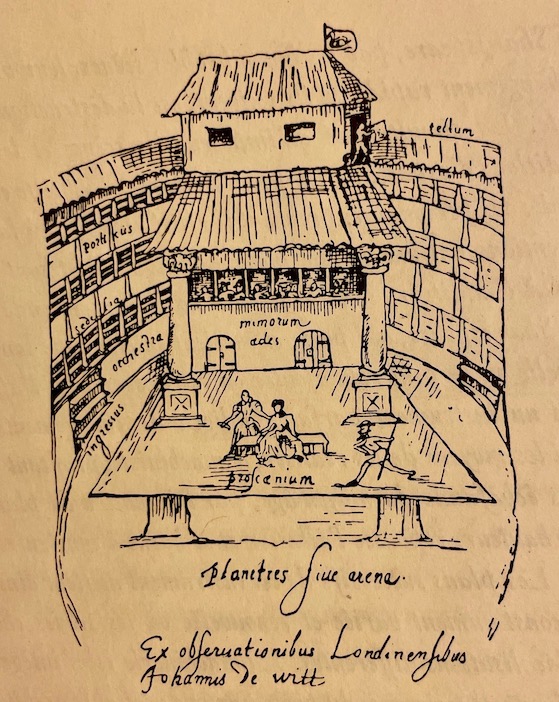 tectum
porticus
sedilia
orchestra
mimorum
ædes
ingressus
proscænium
planities siue arena.
Ex obseruationibus Londinensibus
Johannis de witt